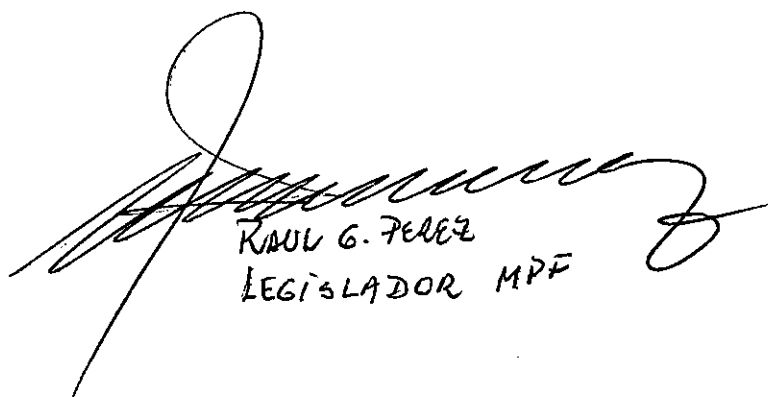 RAUL G. PEREZ
LEGiSLADOR MPF